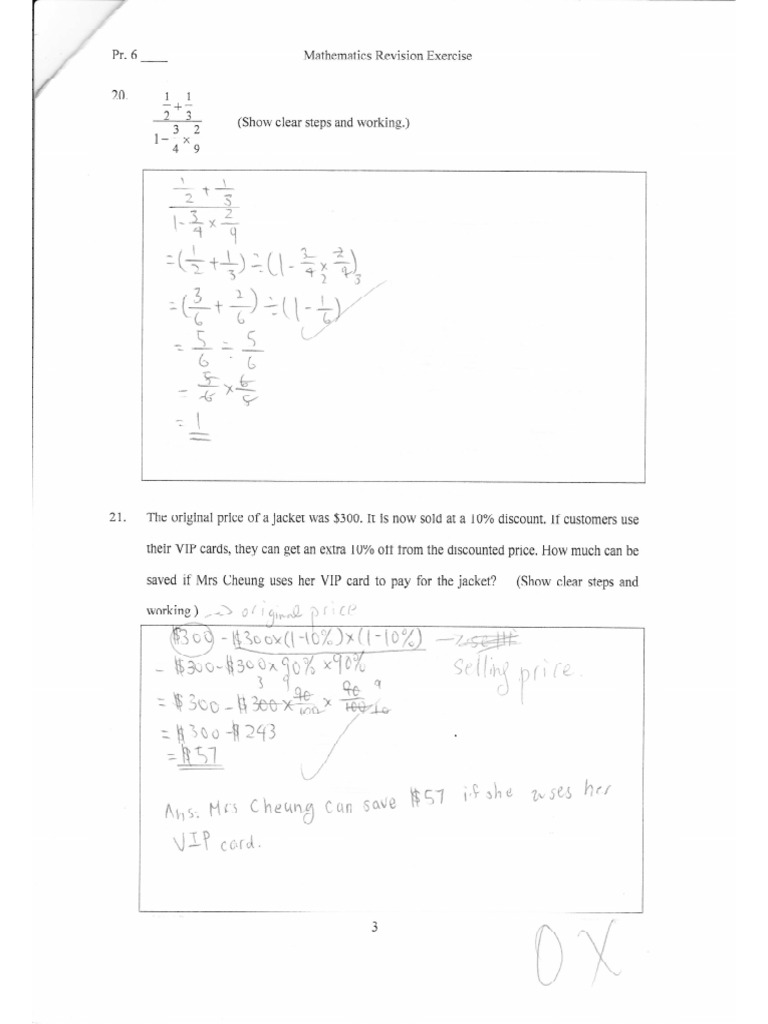 Pr. 6 ____ Mathematics Revision Exercise
20. (1/2 + 1/3) / (1 − 3/4 × 2/9) (Show clear steps and working.)
(1/2 + 1/3) / (1 - 3/4 × 2/9)
= (1/2 + 1/3) ÷ (1 - 3/4 2 × 2/9 3)
= (3/6 + 2/6) ÷ (1 - 1/6)
= 5/6 ÷ 5/6
= 5/6 × 6/5
= 1
21. The original price of a jacket was $300. It is now sold at a 10% discount. If customers use
their VIP cards, they can get an extra 10% off from the discounted price. How much can be
saved if Mrs Cheung uses her VIP card to pay for the jacket? (Show clear steps and
working) → original price
$300 - $300×(1-10%)×(1-10%) —
- $300-$300×90% ×90% selling price.
3 9 9
= $300 - $300 × 90/100 × 90/100 10
= $300 - $243
= $57
Ans: Mrs Cheung can save $57 if she uses her
VIP card.
3
0 X